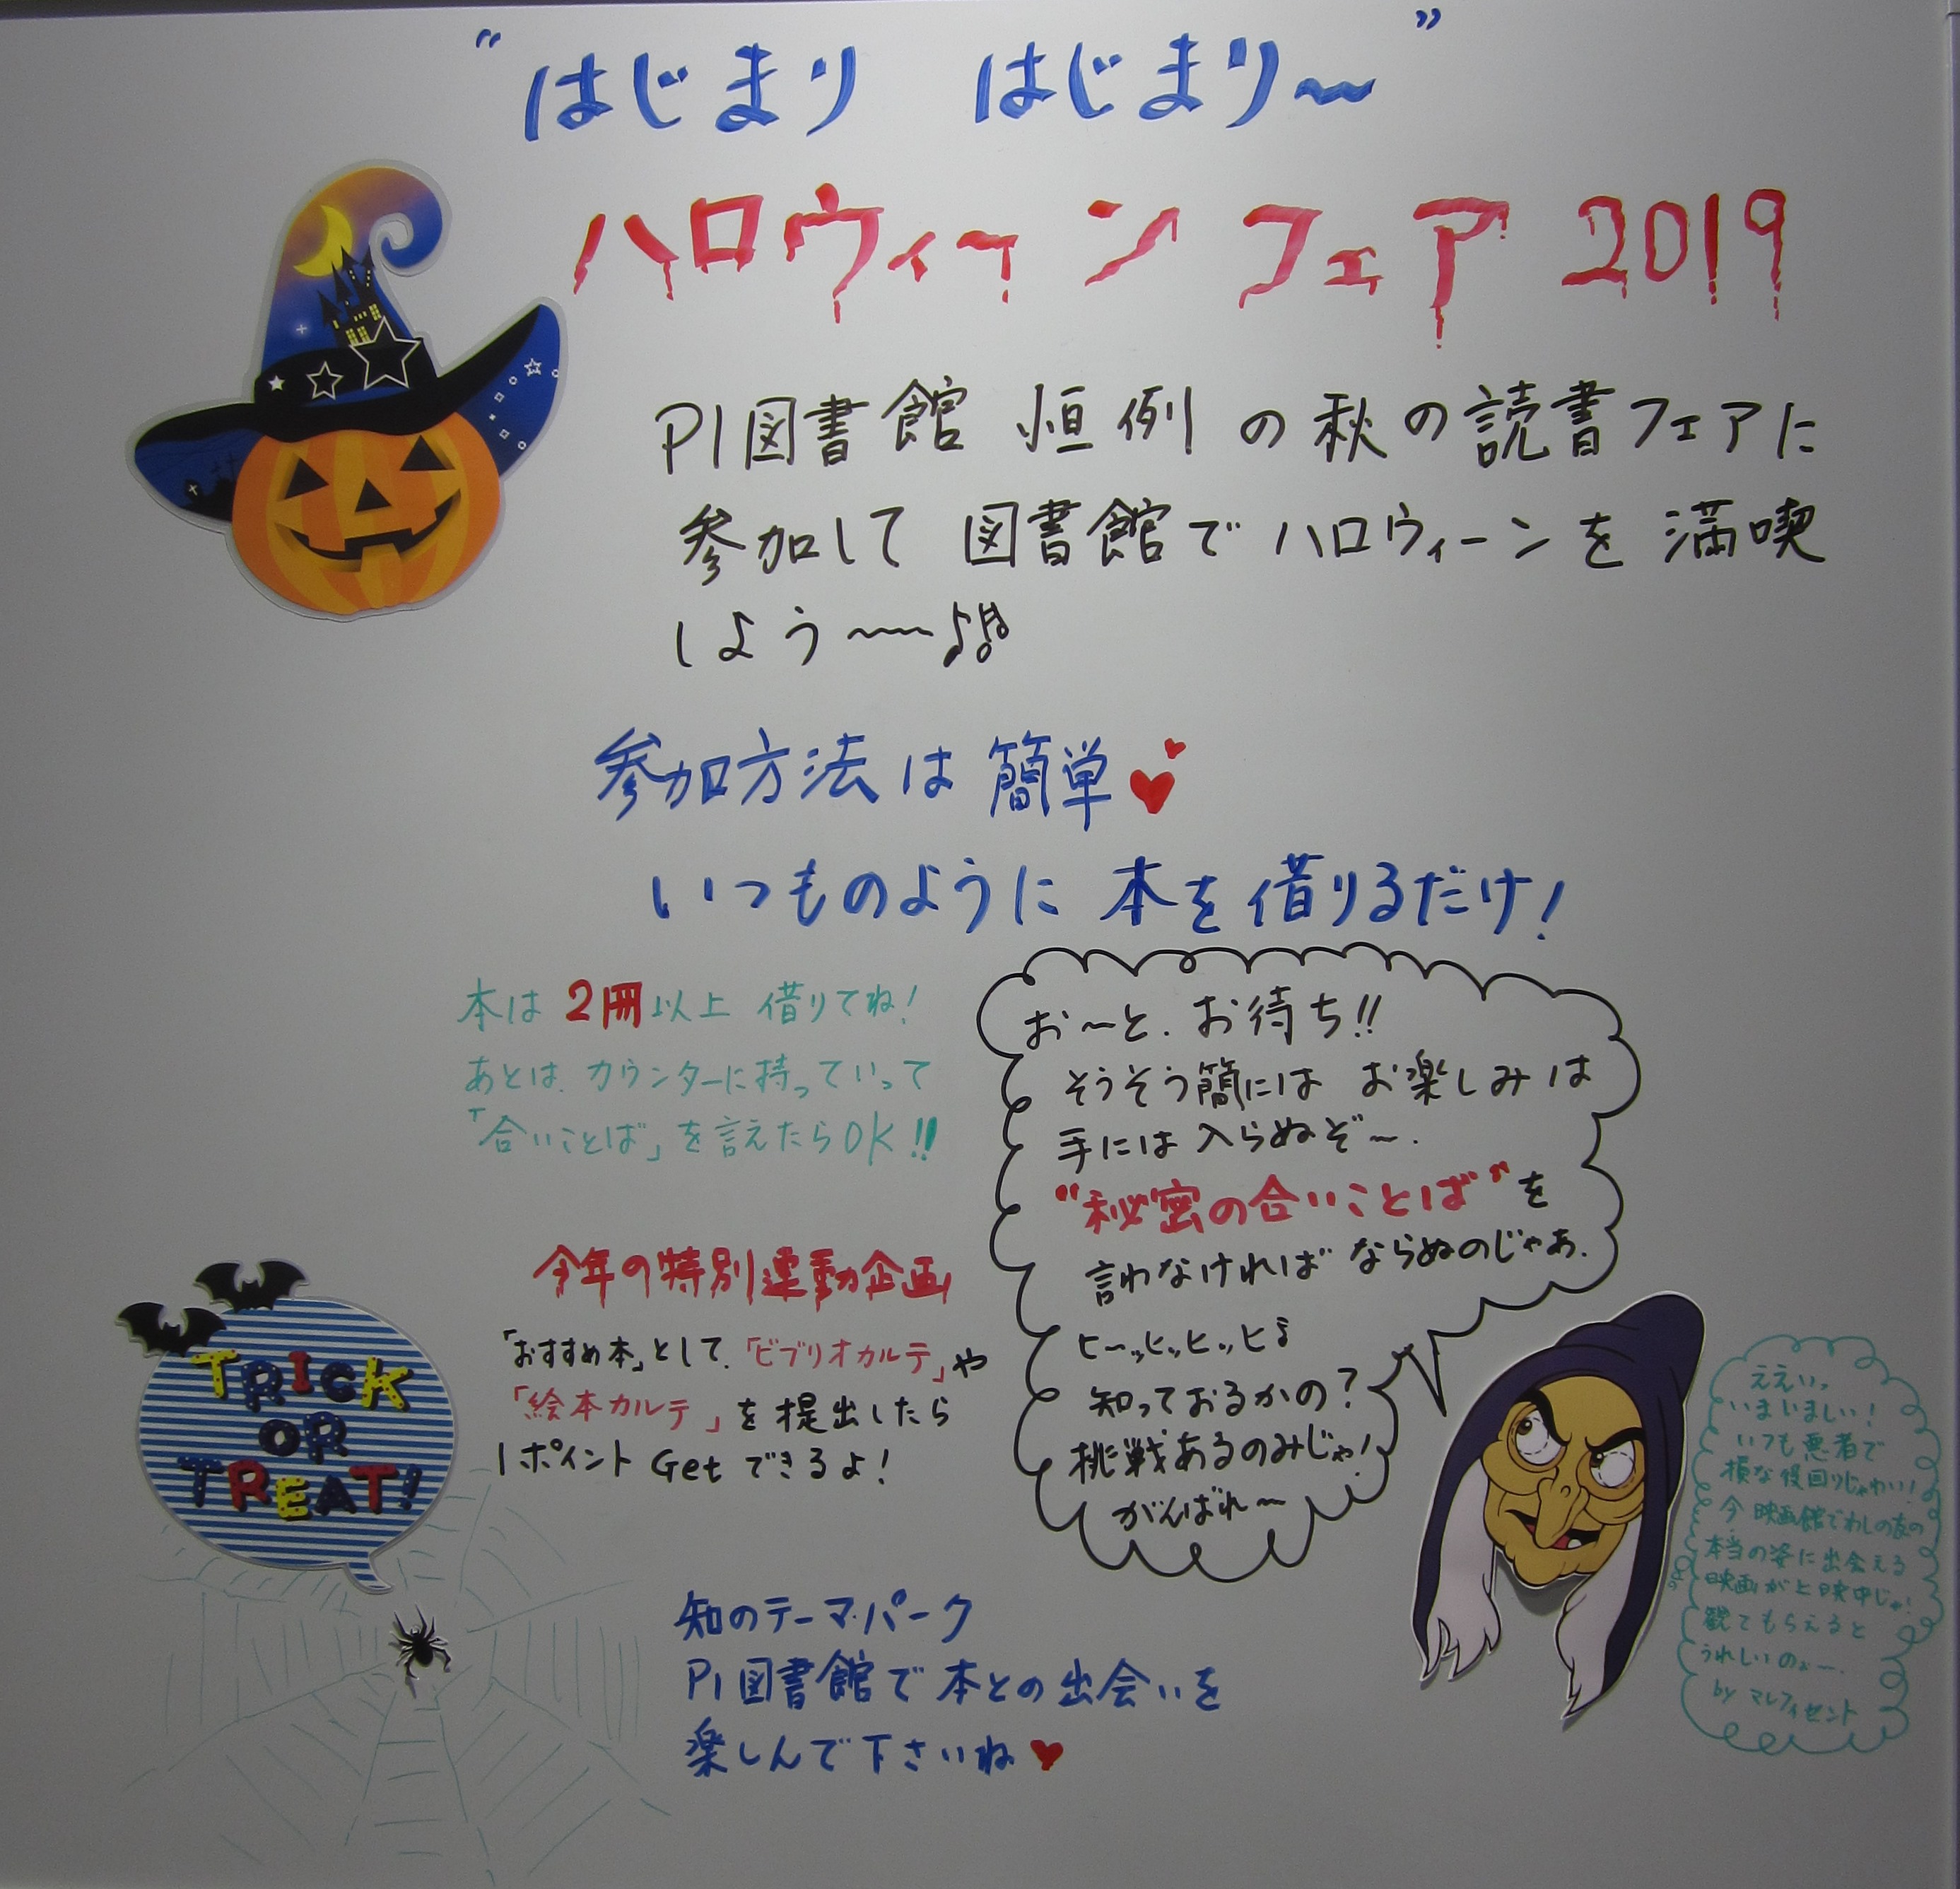 “はじまり はじまり〜”
ハロウィーン フェア 2019
PI図書館 恒例の秋の読書フェアに
参加して 図書館でハロウィーンを満喫
しよう〜〜♪
参加方法は簡単♥
いつものように 本を借りるだけ!
本は 2冊以上 借りてね!
あとは、カウンターに持っていって
「合いことば」を言えたらOK!!
お〜と、お待ち!!
そうそう簡にには お楽しみは
手には入らぬぞ〜.
“秘密の合いことば”を
言わなければ ならぬのじゃあ.
ヒ〜ッヒッヒッヒ
知っておるかの?
挑戦あるのみじゃ!
がんばれ〜
今年の特別連動企画
「おすすめ本」として、「ビブリオカルテ」や
「絵本カルテ」を提出したら
1ポイント Getできるよ!
TRICK
OR
TREAT!
ええいっ
いまいましい!
いつも悪者で
損な役回りじゃわい!
今 映画館でわしの友の
本当の姿に出会える
映画が上映中じゃ!
観てもらえると
うれしいのぉー.
by マレフィセント
知のテーマパーク
PI図書館で本との出会いを
楽しんで下さいね♥